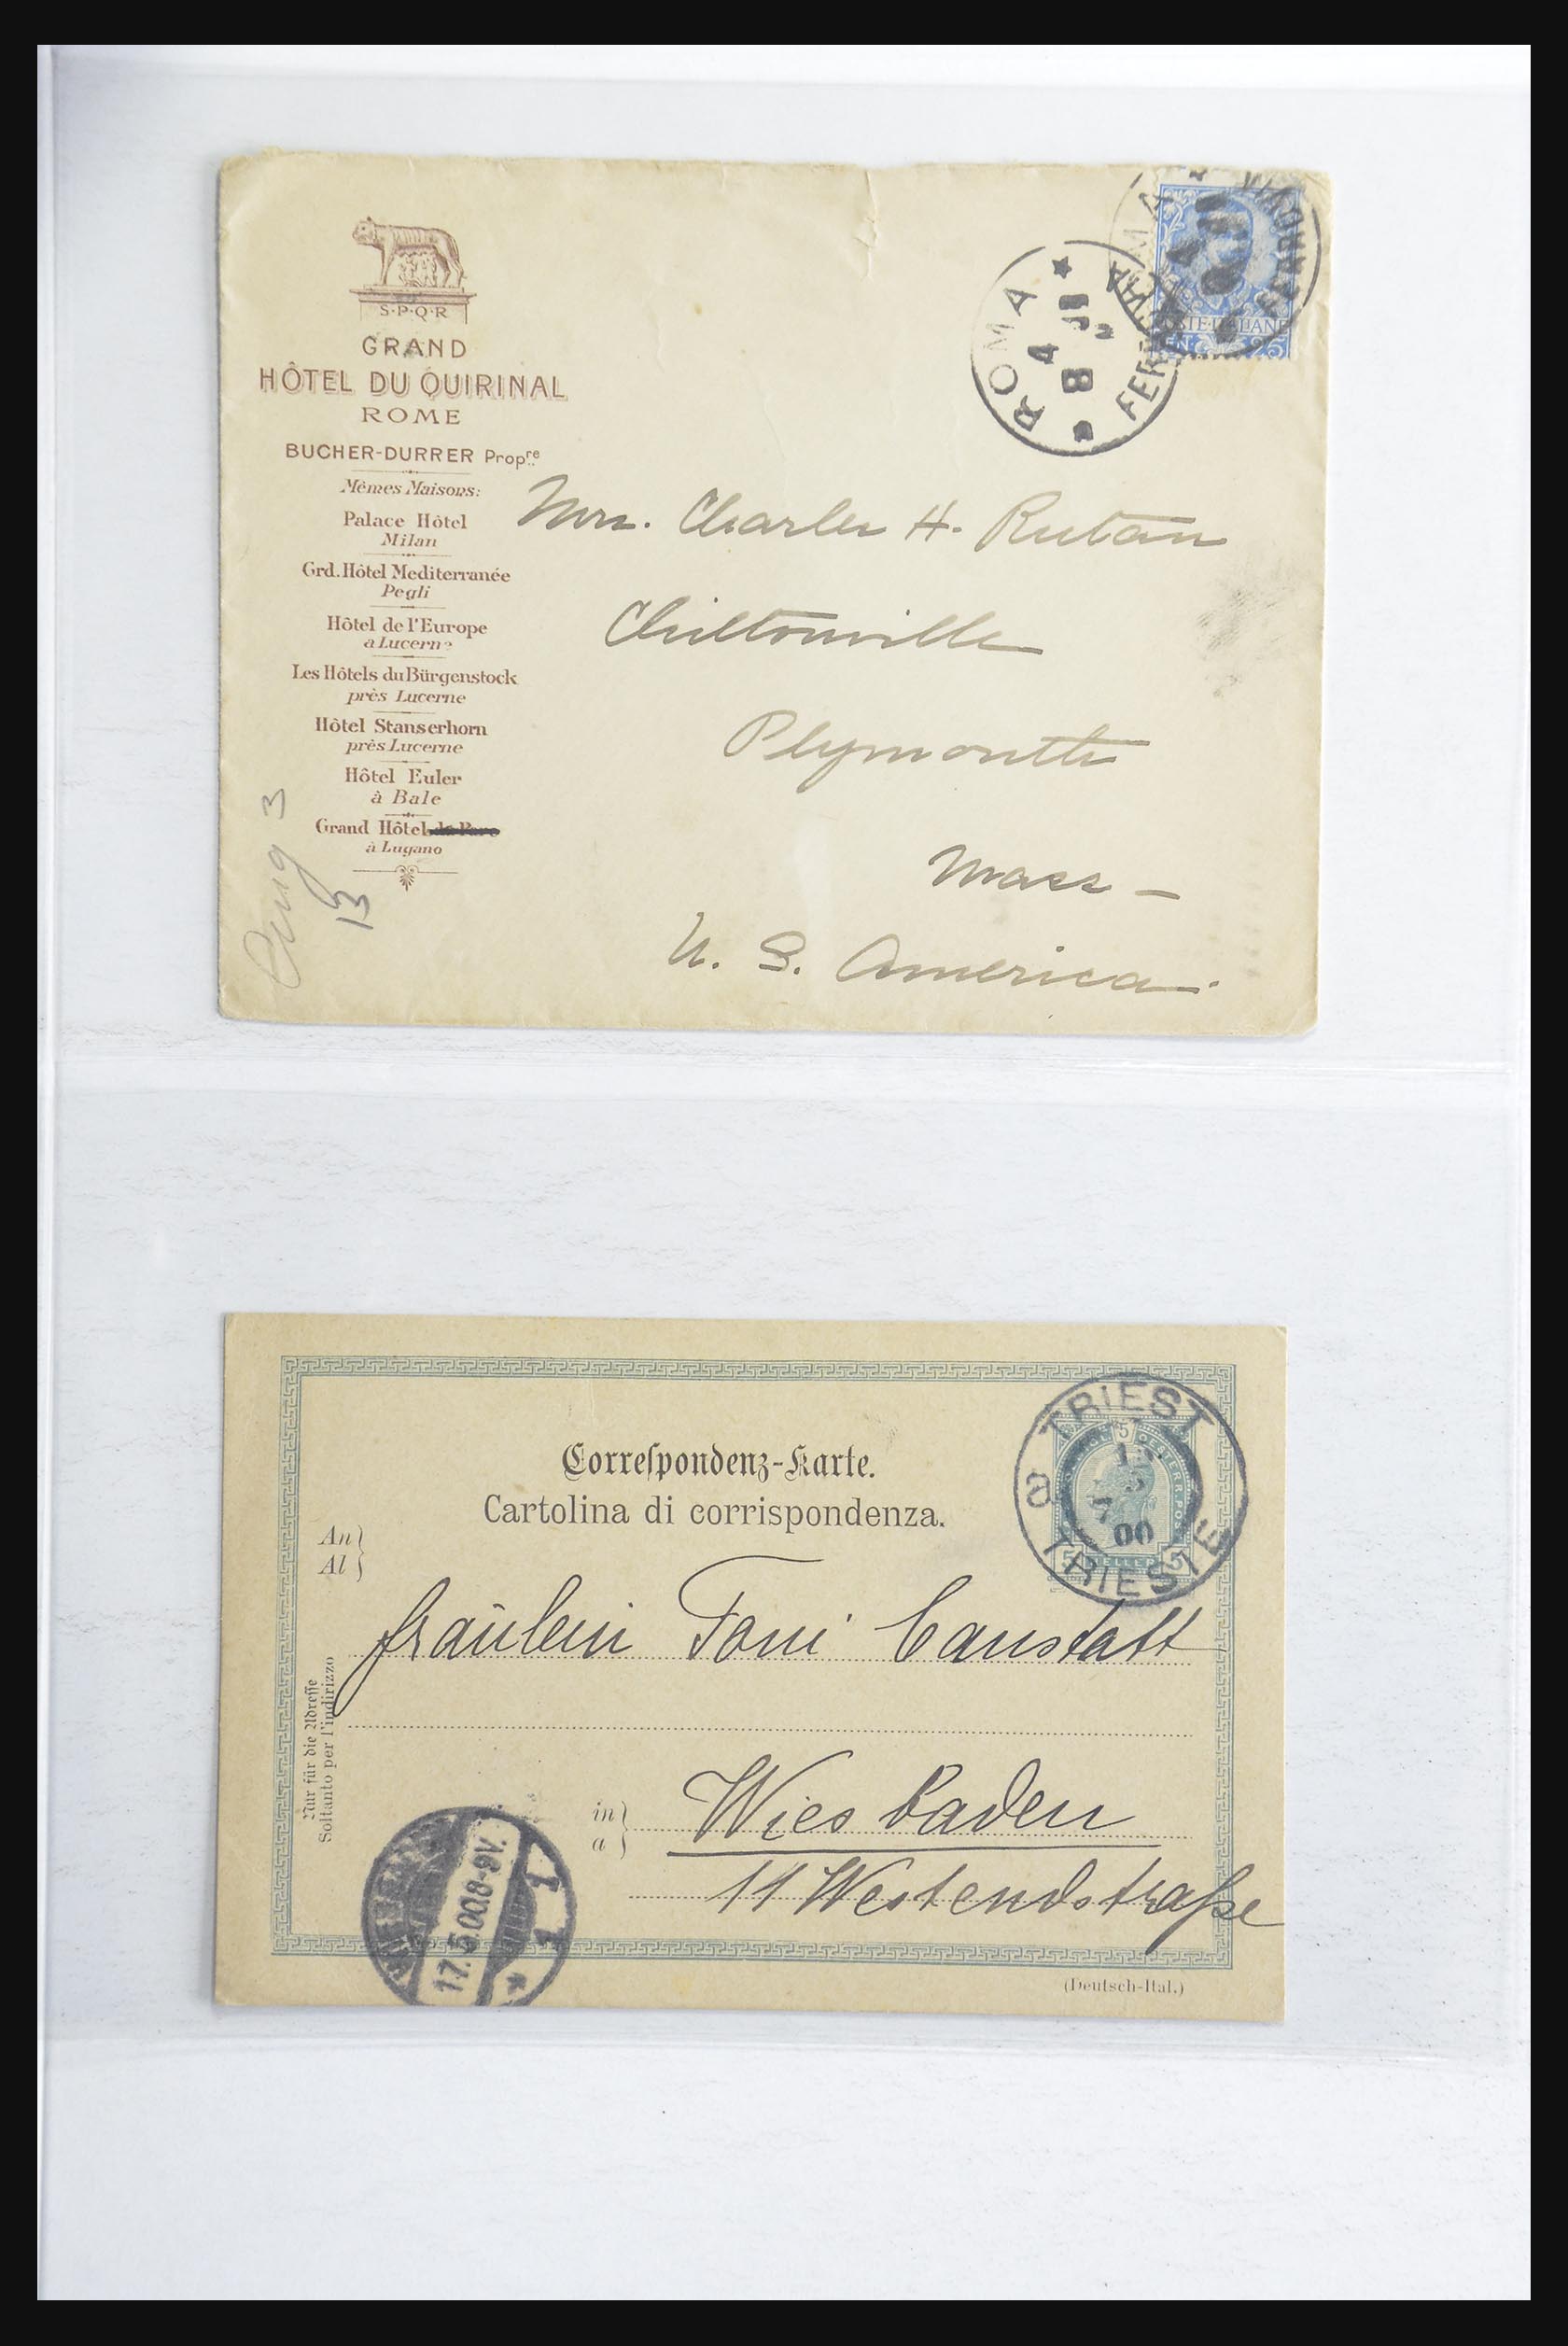 S·P·Q·R
GRAND
HÔTEL DU QUIRINAL
ROME
BUCHER-DURRER Propre
Mêmes Maisons:
Palace Hôtel
Milan
Grd. Hôtel Mediterranée
Pegli
Hôtel de l'Europe
a Lucerne
Les Hôtels du Bürgenstock
près Lucerne
Hôtel Stanserhorn
près Lucerne
Hôtel Euler
à Bale
Grand Hôtel du Parc
à Lugano
Aug 3
13
ROMA
FERROVIA
4
8
ROMA
FERROVIA
POSTE ITALIANE
25
Mrs. Charles H. Rutan
Chiltonville
Plymouth
Mass –
U. S. America.
Correſpondenz-Karte.
Cartolina di corrispondenza.
TRIEST
TRIESTE
a
5
7
00
5 HELLER 5
An
Al
Fräulein Toni Canstatt
Nur für die Adreſſe
Soltanto per l'indirizzo
in
a
Wiesbaden
11 Westendstraße
17.5.00.8-9V.
1
1
(Deutsch-Ital.)